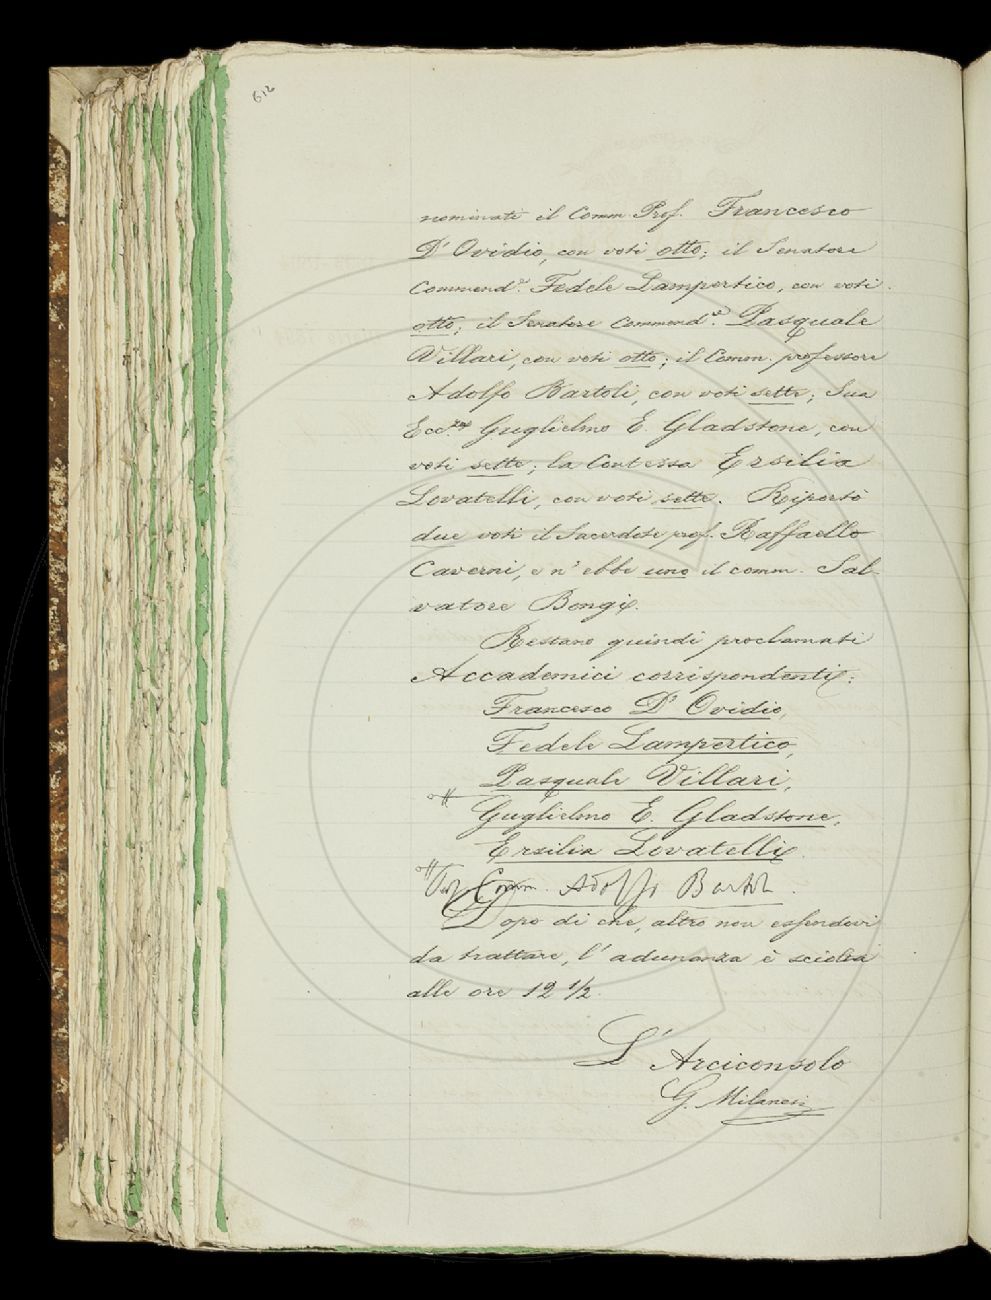 612
nominati il Comm. Prof. Francesco
D'Ovidio, con voti otto; il Senatore
Commend.e Fedele Lampertico, con voti
otto; il Senatore Commend.re Pasquale
Villari, con voti otto; il Comm. professore
Adolfo Bartoli, con voti sette; Sua
Ecc.za Guglielmo E. Gladstone, con
voti sette; la Contessa Ersilia
Lovatelli, con voti sette. Riportò
due voti il Sacerdote prof. Raffaello
Caverni, e n'ebbe uno il comm. Sal-
vatore Bongi.
Restano quindi proclamati
Accademici corrispondenti:
Francesco D'Ovidio,
Fedele Lampertico,
Pasquale Villari,
Guglielmo E. Gladstone,
Ersilia Lovatelli.
Comm. Adolfo Bartoli.
Dopo di che, altro non essendovi
da trattare, l'adunanza è sciolta
alle ore 12 1/2.
L'Arciconsolo
G. Milanesi